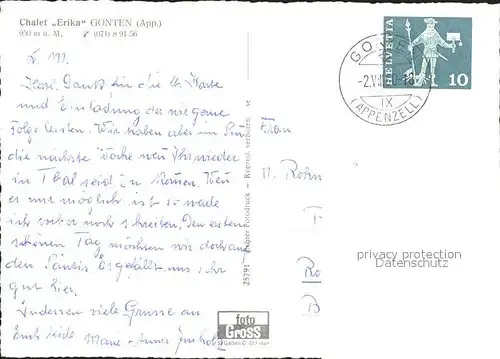 Chalet „Erika" GONTEN (App.)
950 m ü. M. ✆ (071) 8 91 56
L. M.
Herzl. Dank für die lb. Karte
und Einladung der wir gerne
Folge leisten. Wir haben aber im Sinn
die nächste Woche wenn Ihr wieder
in Thal seid zu kommen. Wenn
es uns möglich ist so werde
ich vorher noch schreiben. Den ersten
schönen Tag möchten wir doch auf
den Säntis. Es gefällt uns sehr
gut hier.
Indessen viele Grüsse an
Euch beide Marie-
25791
Reprod. verboten
foto
Gross
St. Gallen
HELVETIA
10
GO
-2.V
IX
(APPENZELL)
Frau
M. Rohn
T
Ro
B
privacy protection
Datenschutz